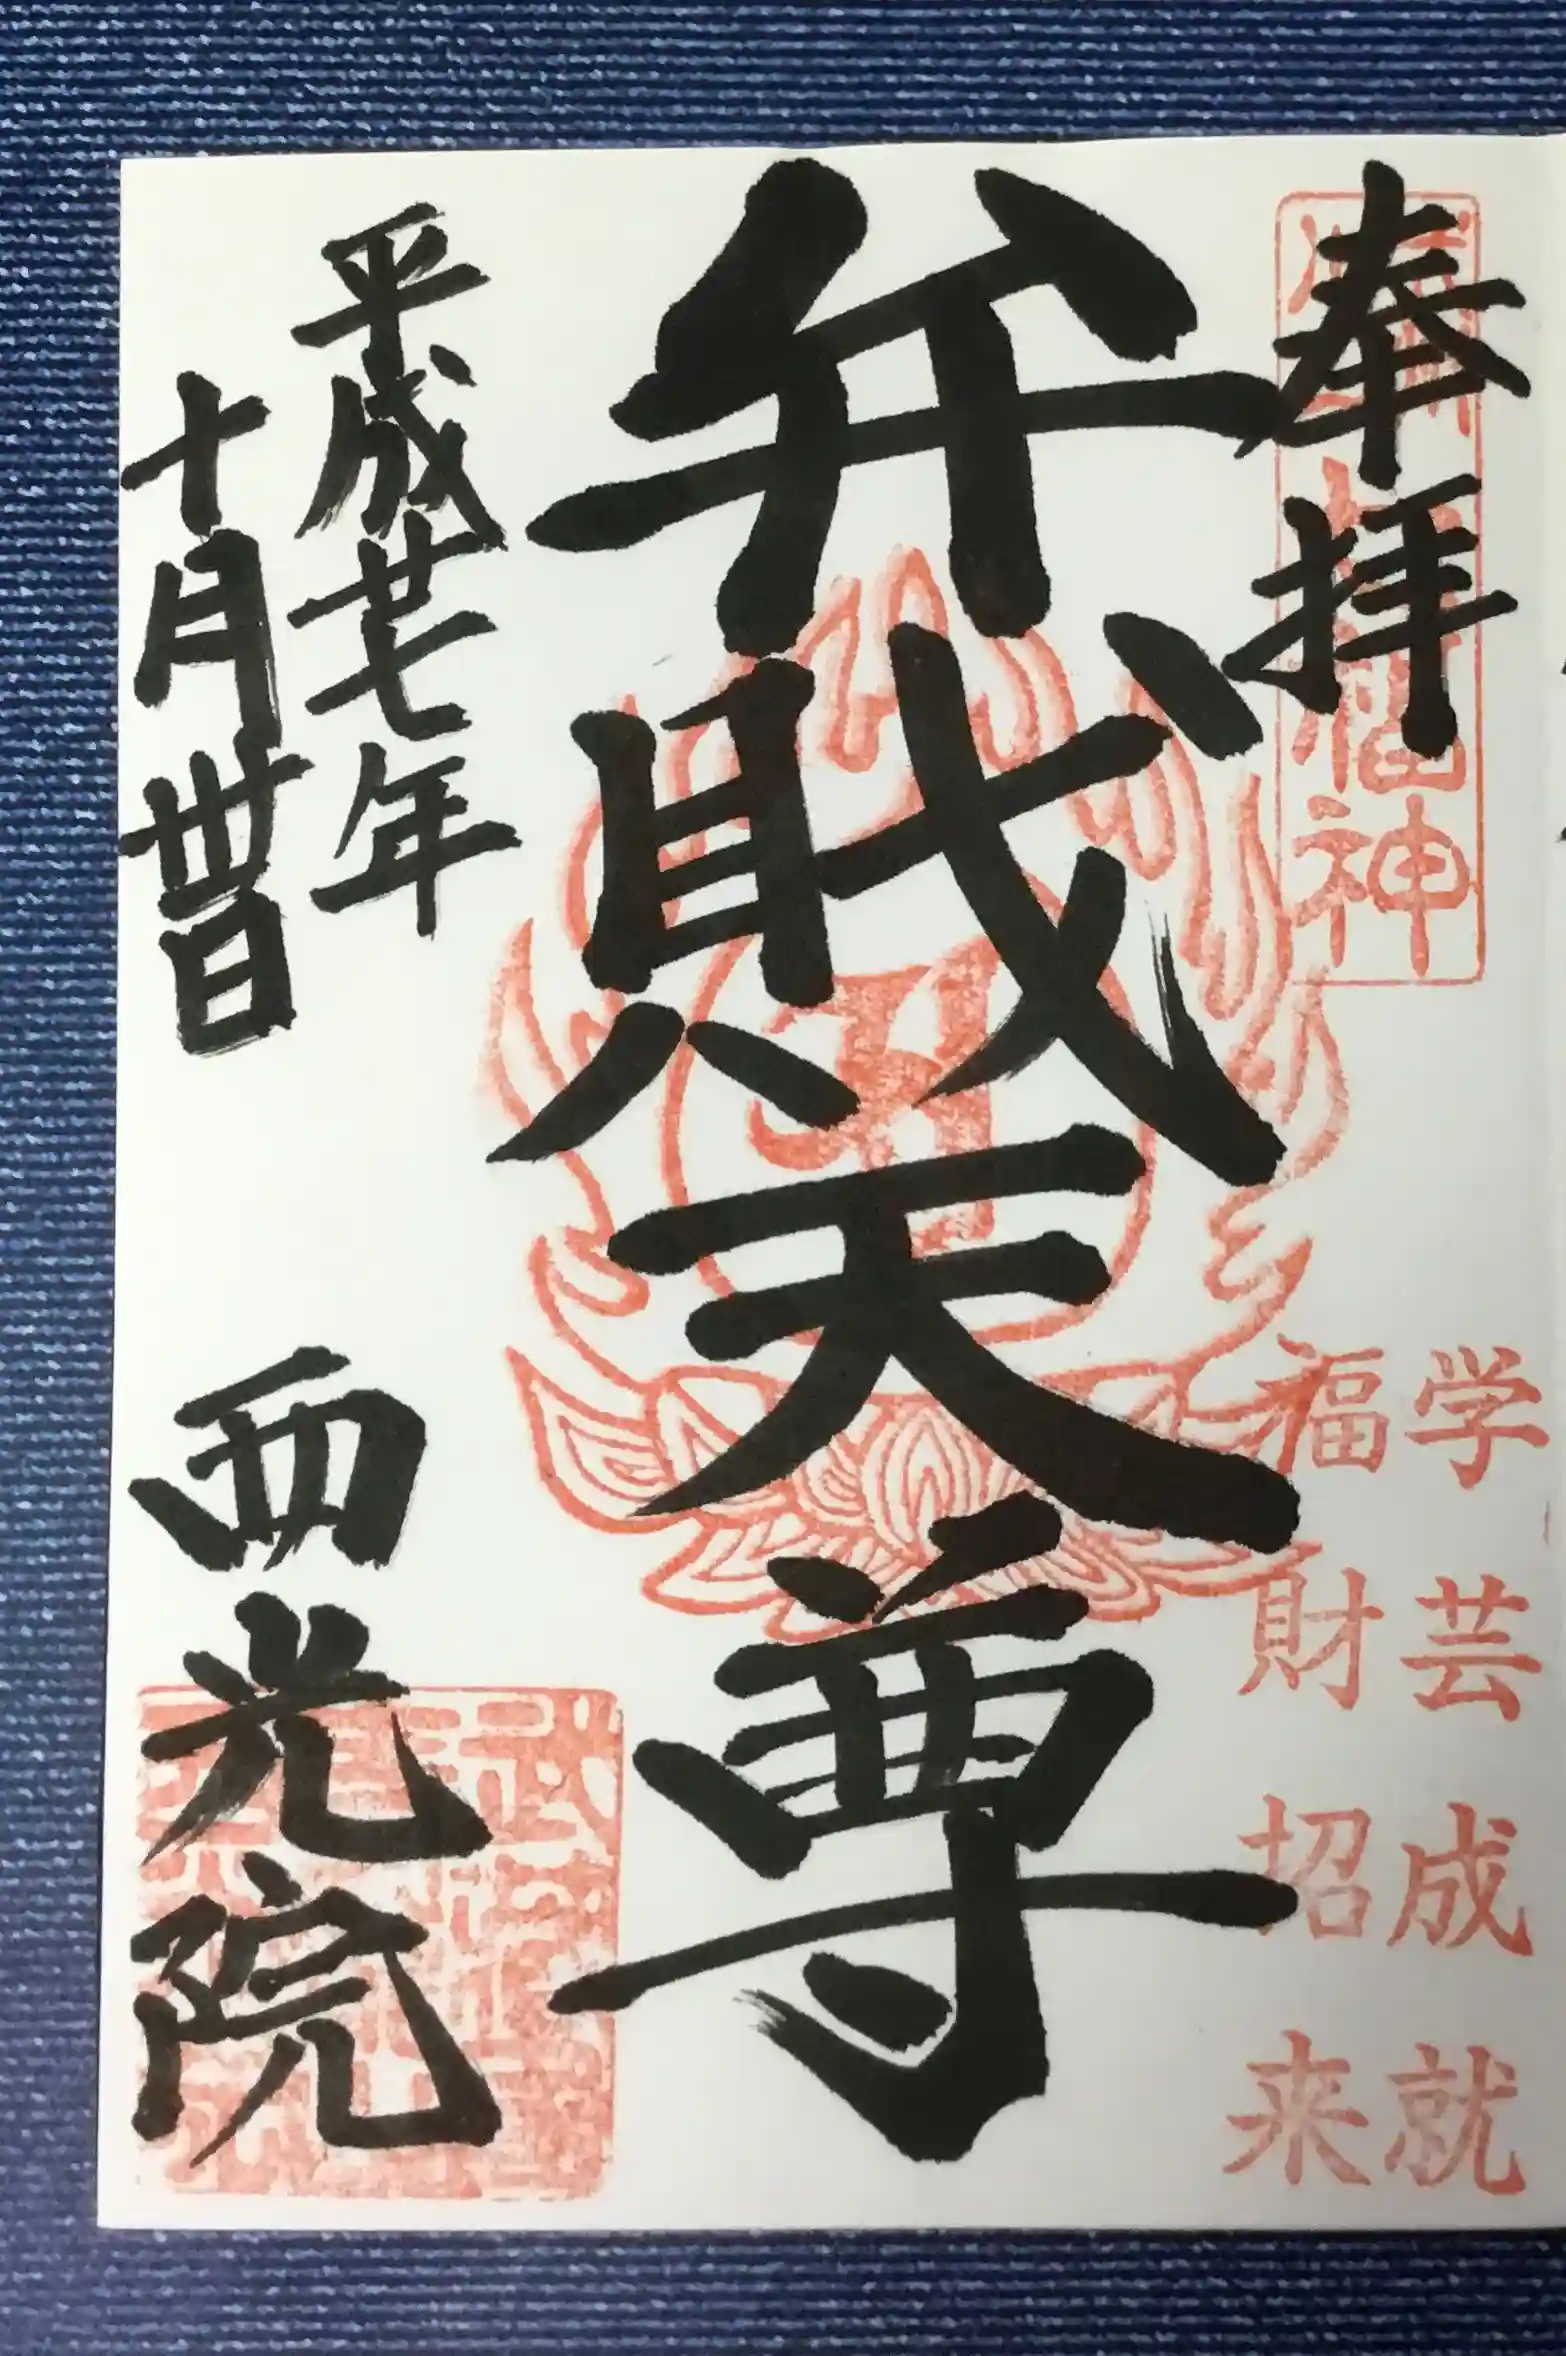 奉拝
福神
学芸成就
福財招来
弁財天尊
平成廿七年
十月卅日
西光院